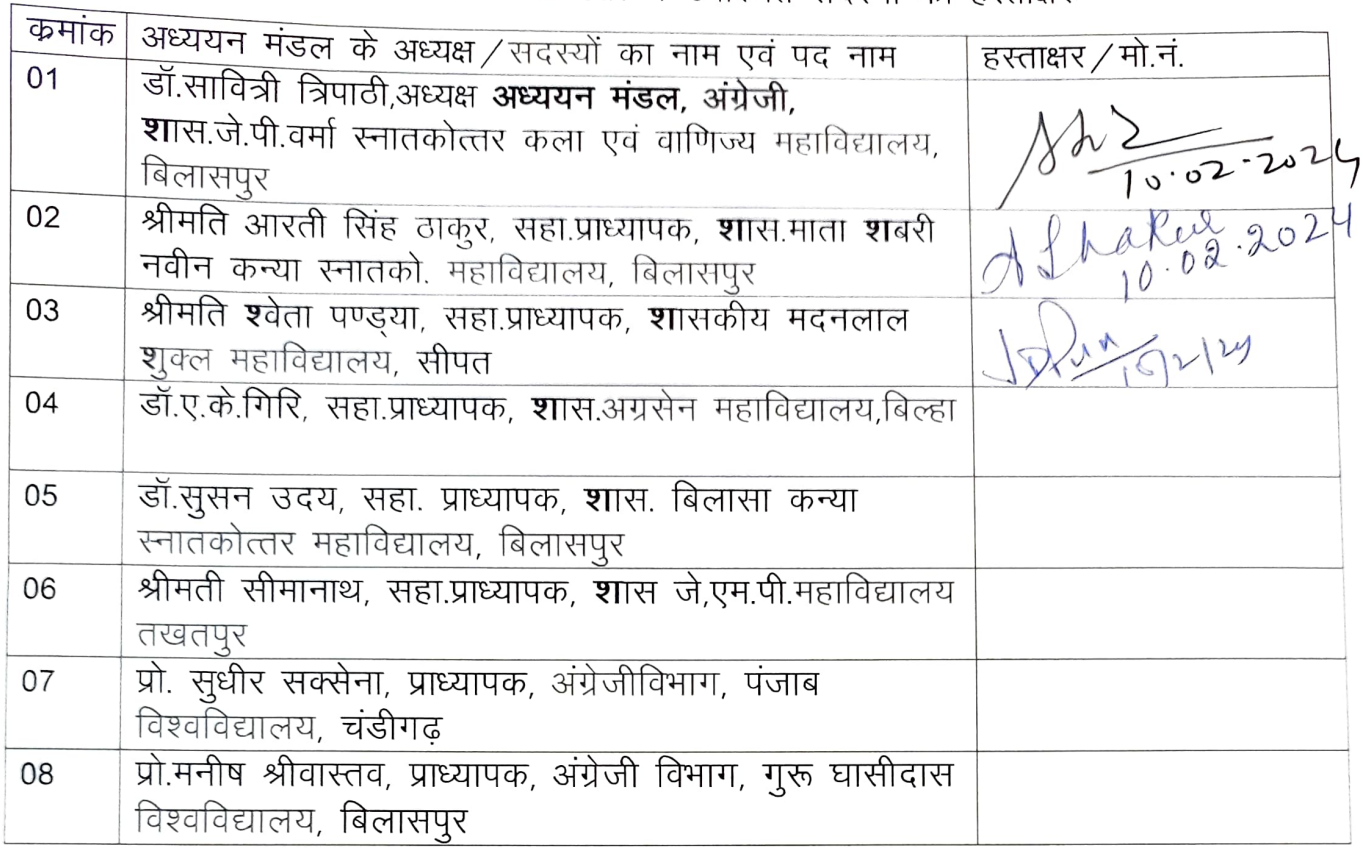 हस्ताक्षर
क्रमांक अध्ययन मंडल के अध्यक्ष/सदस्यों का नाम एवं पद नाम हस्ताक्षर/मो.नं.
01 डॉ.सावित्री त्रिपाठी,अध्यक्ष अध्ययन मंडल, अंग्रेजी,
शास.जे.पी.वर्मा स्नातकोत्तर कला एवं वाणिज्य महाविद्यालय,
बिलासपुर
10.02.2024
02 श्रीमति आरती सिंह ठाकुर, सहा.प्राध्यापक, शास.माता शबरी
नवीन कन्या स्नातको. महाविद्यालय, बिलासपुर
10.02.2024
03 श्रीमति श्वेता पण्ड्या, सहा.प्राध्यापक, शासकीय मदनलाल
शुक्ल महाविद्यालय, सीपत
04 डॉ.ए.के.गिरि, सहा.प्राध्यापक, शास.अग्रसेन महाविद्यालय,बिल्हा
05 डॉ.सुसन उदय, सहा. प्राध्यापक, शास. बिलासा कन्या
स्नातकोत्तर महाविद्यालय, बिलासपुर
06 श्रीमती सीमानाथ, सहा.प्राध्यापक, शास जे,एम.पी.महाविद्यालय
तखतपुर
07 प्रो. सुधीर सक्सेना, प्राध्यापक, अंग्रेजीविभाग, पंजाब
विश्वविद्यालय, चंडीगढ़
08 प्रो.मनीष श्रीवास्तव, प्राध्यापक, अंग्रेजी विभाग, गुरू घासीदास
विश्वविद्यालय, बिलासपुर